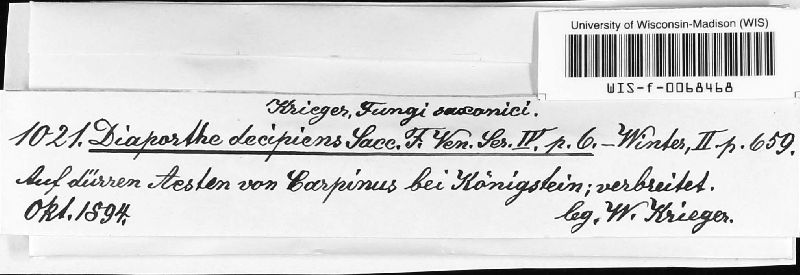 University of Wisconsin-Madison (WIS)
WIS-f-0068468
Krieger, Fungi saxonici.
1021. Diaporthe decipiens Sacc. F. Ven. Ser. IV. p. 6. – Winter, II p. 659.
Auf dürren Aesten von Carpinus bei Königstein; verbreitet.
Okt. 1894.
leg. W. Krieger.